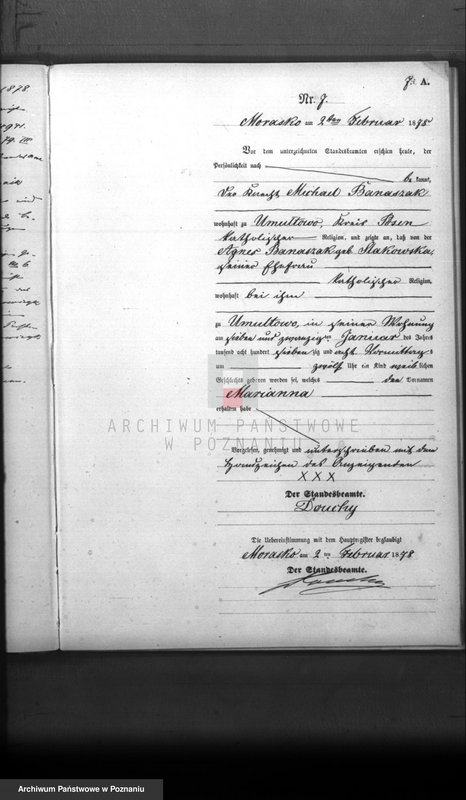 7. A.
Nr. 7.
Morasko am 2ten Februar 1878
Vor dem unterzeichneten Standesbeamten erschien heute, der
Persönlichkeit nach
bekannt,
der Knecht Michael Banaszak
wohnhaft zu Umultowo, Kreis Posen
katholischer Religion, und zeigte an, daß von der
Agnes Banaszak geb. Stakowska,
seiner Ehefrau
katholischer Religion,
wohnhaft bei ihm
zu Umultowo, in seiner Wohnung
am sieben und zwanzigten Januar des Jahres
tausend acht hundert siebenzig und acht Vormittags
um zwölf Uhr ein Kind weiblichen
Geschlechts geboren worden sei, welches den Vornamen
Marianna
erhalten habe
ARCHIWUM PAŃSTWOWE
W POZNANIU
Vorgelesen, genehmigt und unterschrieben mit dem
Handzeichen des Anzeigenden
XXX
Der Standesbeamte.
Douchy
Die Uebereinstimmung mit dem Hauptregister beglaubigt
Morasko am 2ten Februar 1878
Der Standesbeamte.
Archiwum Państwowe w Poznaniu